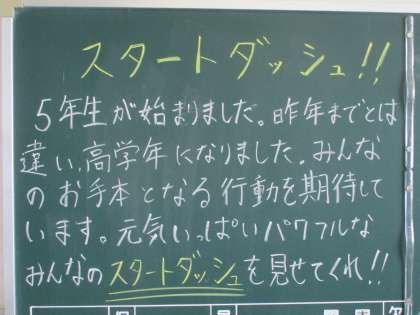 スタートダッシュ!!
5年生が始まりました。昨年までとは
違い、高学年になりました。みんな
のお手本となる行動を期待して
います。元気いっぱいパワフルな
みんなのスタートダッシュを見せてくれ!!